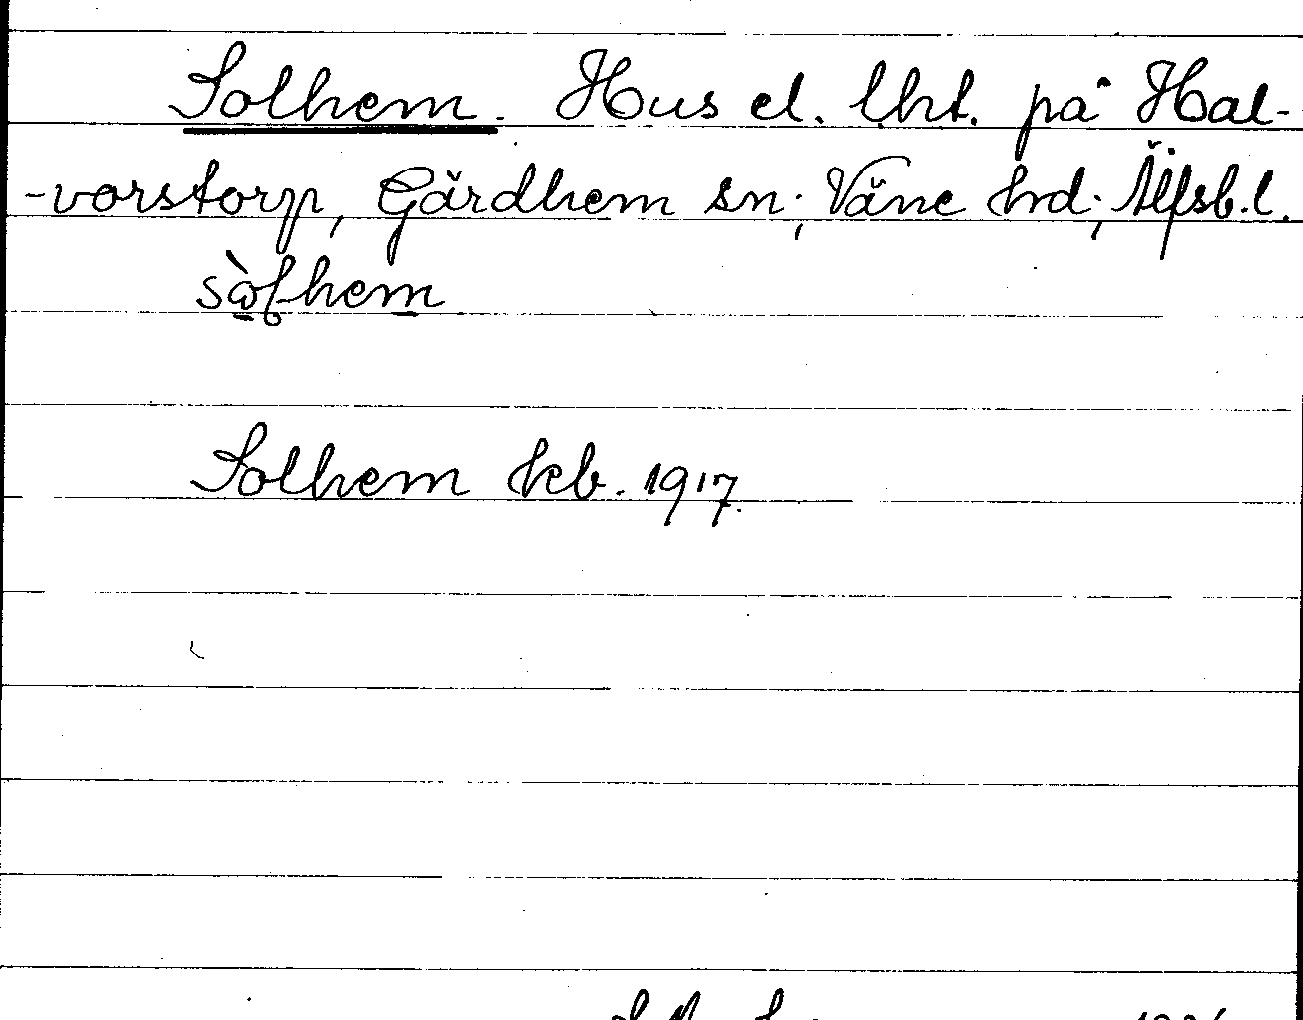 Solhem. Hus el. lht. på Hal-
-vorstorp, Gärdhem sn; Väne hrd; Älfsb. l.
Solhem kb. 1917.